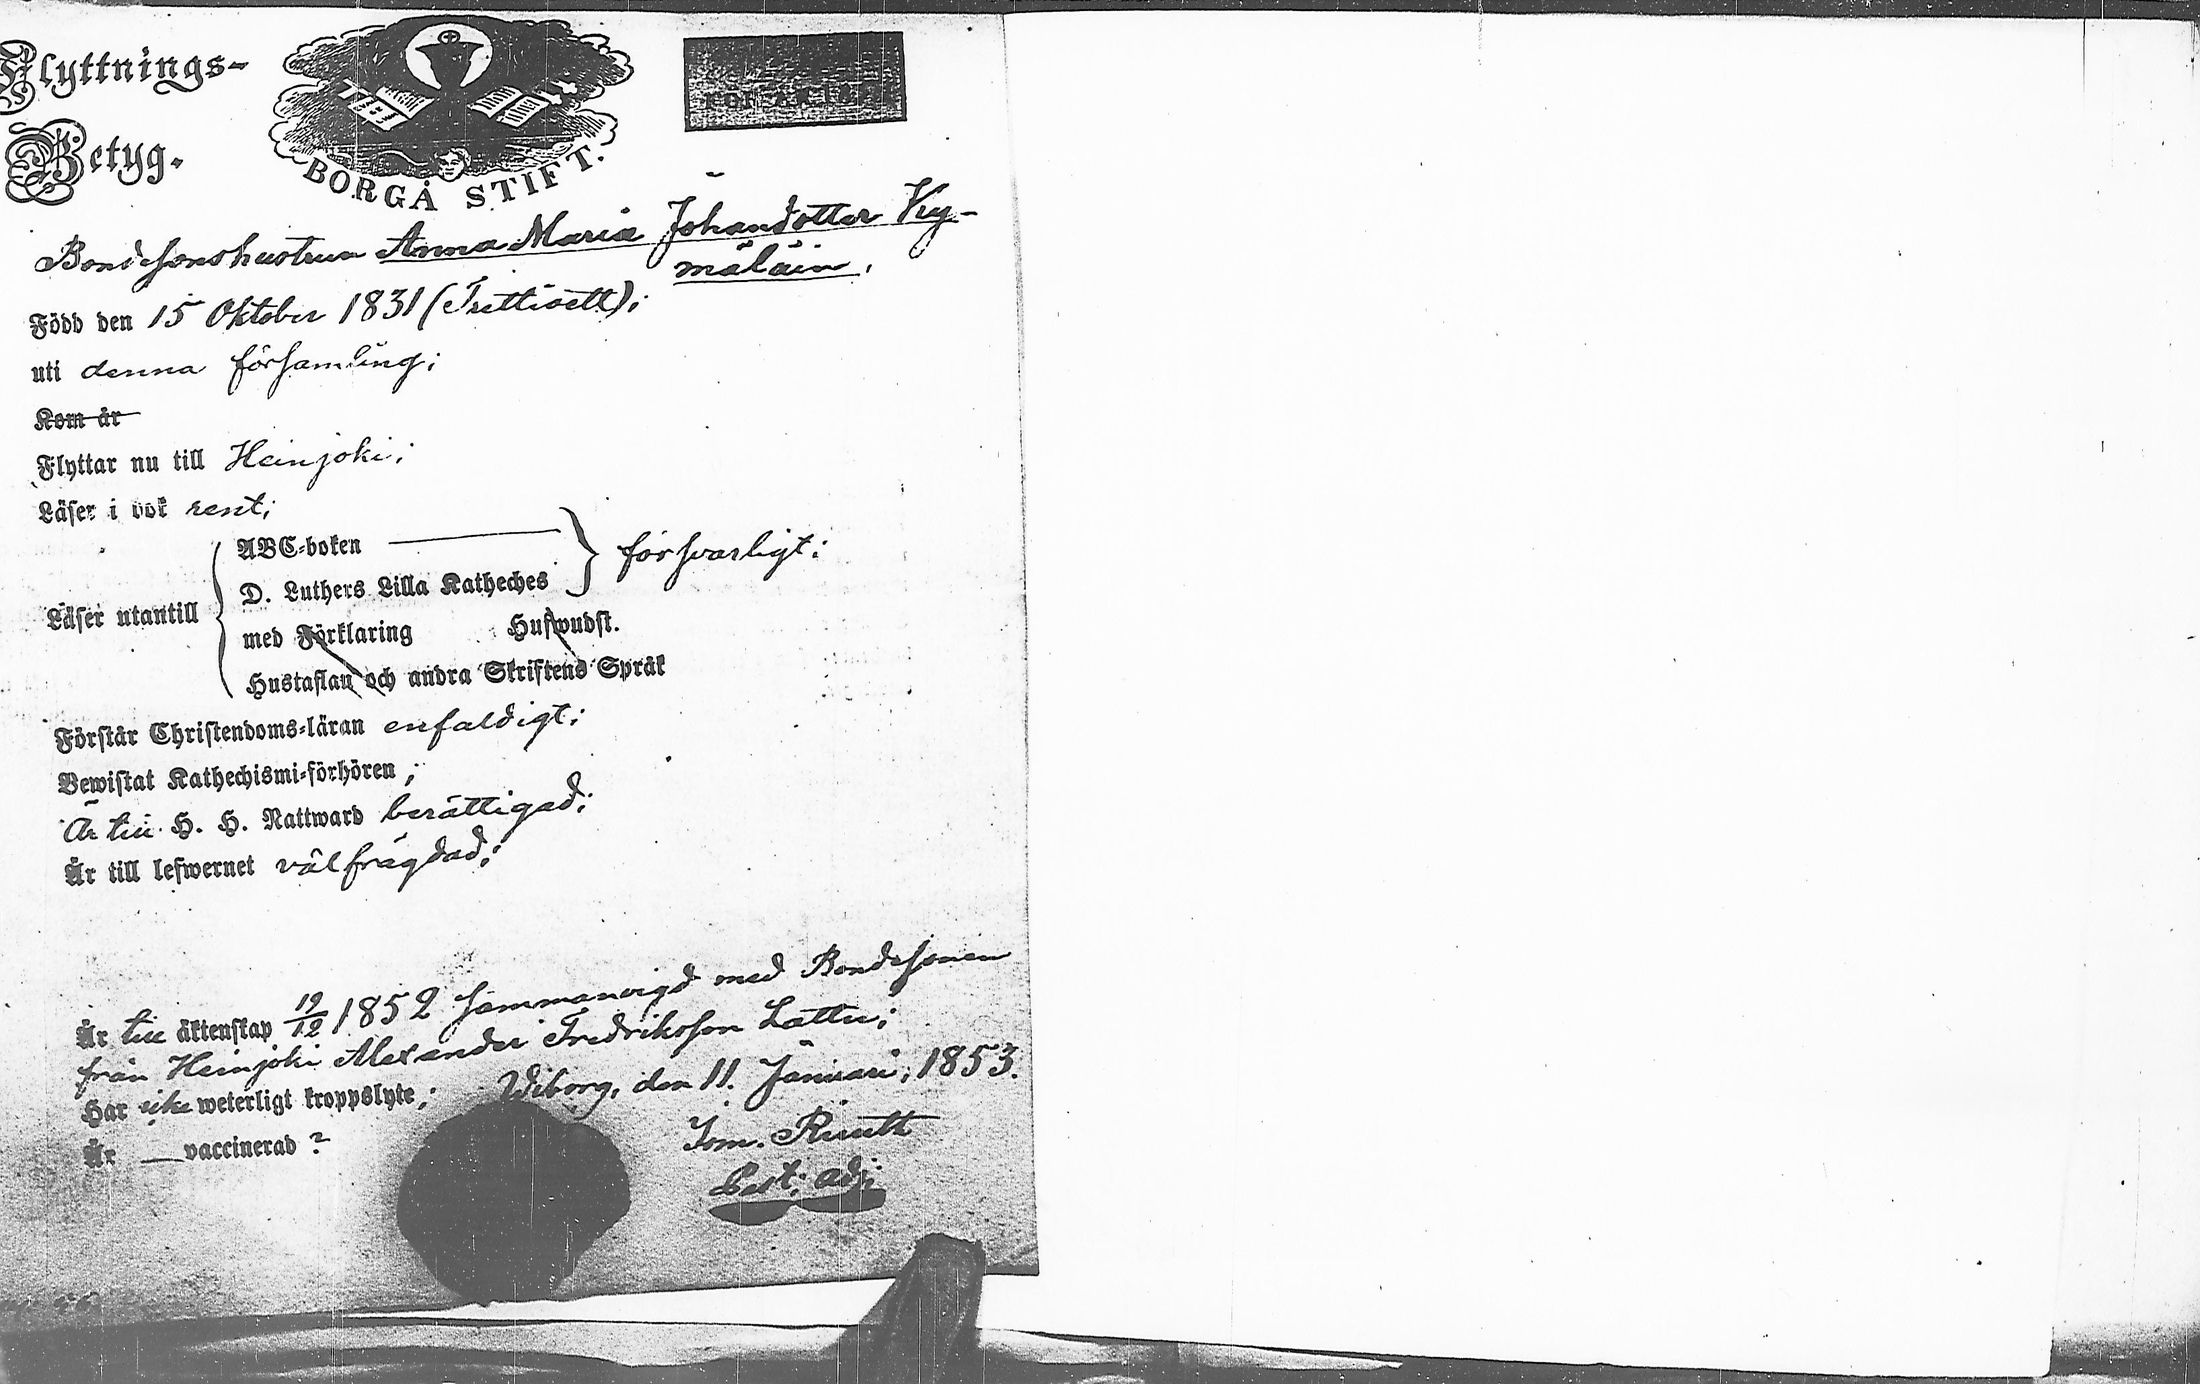 Flyttnings-
Betyg.
BORGÅ STIFT.
FÖR ÅR
Bondesonshustrun Anna Maria Johansdotter Ky-
mäläin,
Född den 15 Oktober 1831 (Trettioett);
uti denna församling;
Kom år
Flyttar nu till Heinjoki;
Läser i bok rent;
Läser utantill
ABC-boken
D. Luthers Lilla Katheches
försvarligt;
med Förklaring
Hustaflan och andra Skriftens Språk
Förstår Christendoms-läran enfaldigt;
Bewistat Kathechismi-förhören;
Är till H. H. Nattward berättigad;
Är till lefwernet välfrägdad;
Är till äktenskap 19/12 1852 sammanvigd med Bondesonen
från Heinjoki Alexander Fredriksson Lattu;
Har icke weterligt kroppslyte;
Wiborg, den 11. Januari, 1853.
Är — vaccinerad?
adj.